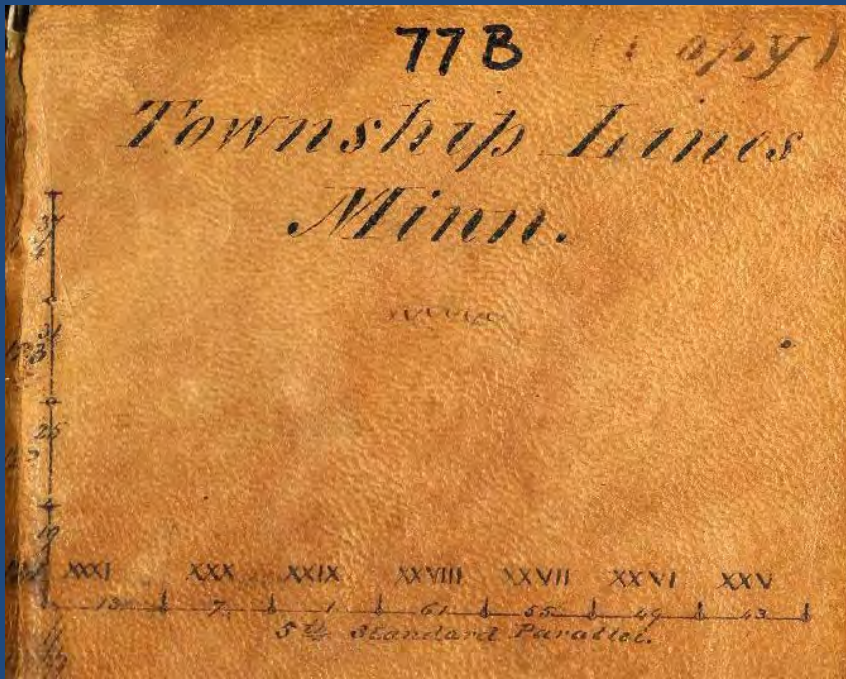 77B (Copy)
Township Lines
Minn.
37
31
25
19
XXXI XXX XXIX XXVIII XXVII XXVI XXV
13 7 1 61 55 49 43
5th Standard Parallel.